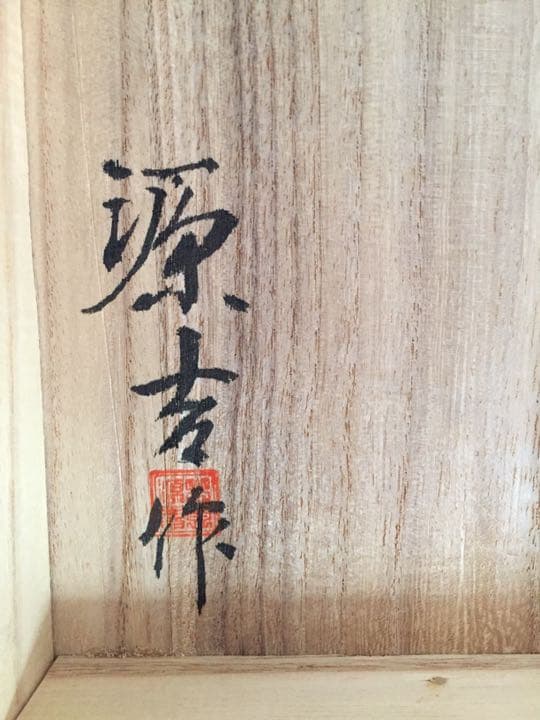 源吉作